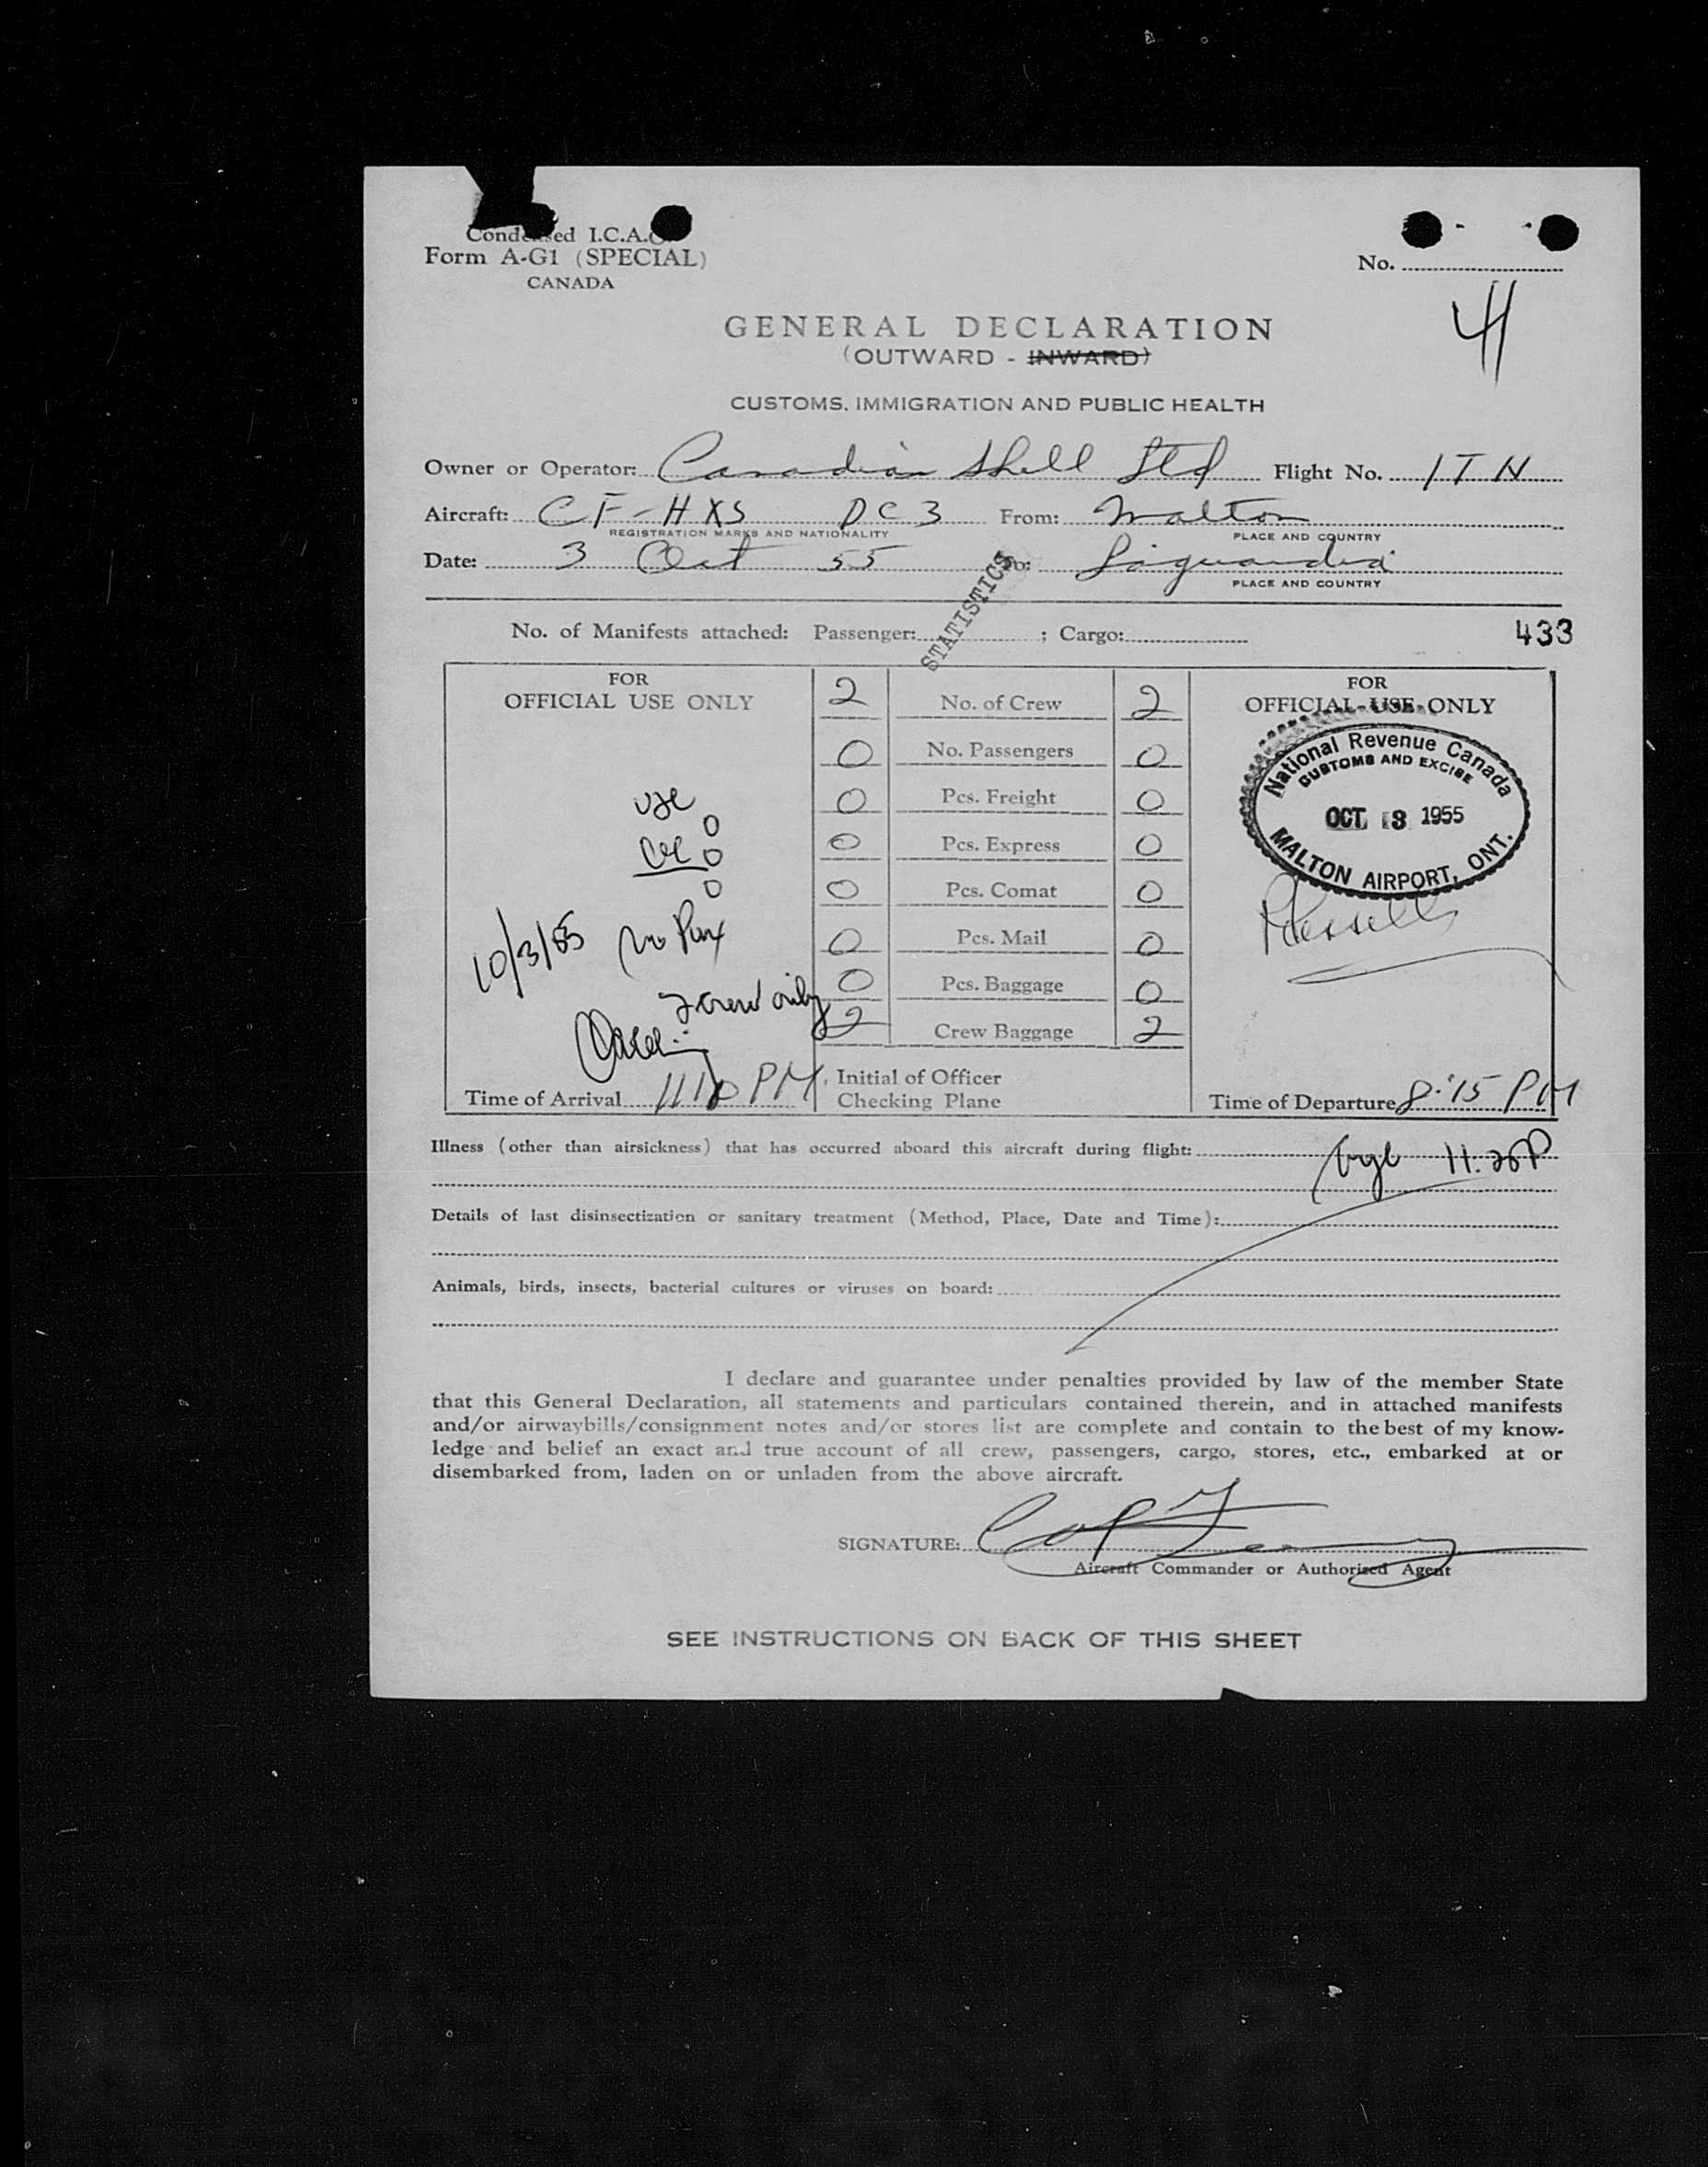 Condensed I.C.A.O.
Form A-G1 (SPECIAL)
CANADA
No.
41
GENERAL DECLARATION
(OUTWARD - INWARD)
CUSTOMS, IMMIGRATION AND PUBLIC HEALTH
Owner or Operator: Canadian Shell Ltd Flight No. 1TN
Aircraft: CF-HXS DC3 From: Malton
REGISTRATION MARKS AND NATIONALITY PLACE AND COUNTRY
Date: 3 Oct 55 To: Laguardia
PLACE AND COUNTRY
STATISTICS
No. of Manifests attached: Passenger: ; Cargo: 433
FOR OFFICIAL USE ONLY
2 No. of Crew 2
0 No. Passengers 0
0 Pcs. Freight 0
0 Pcs. Express 0
0 Pcs. Comat 0
0 Pcs. Mail 0
0 Pcs. Baggage 0
2 Crew Baggage 2
0
0
0
10/3/55 No Pax
2 crew only
Time of Arrival 1110 PM
Initial of Officer
Checking Plane
FOR
OFFICIAL USE ONLY
National Revenue Canada
CUSTOMS AND EXCISE
OCT 3 1955
MALTON AIRPORT, ONT.
Time of Departure 8:15 PM
Illness (other than airsickness) that has occurred aboard this aircraft during flight: 11.20P
Details of last disinsectization or sanitary treatment (Method, Place, Date and Time):
Animals, birds, insects, bacterial cultures or viruses on board:
I declare and guarantee under penalties provided by law of the member State
that this General Declaration, all statements and particulars contained therein, and in attached manifests
and/or airwaybills/consignment notes and/or stores list are complete and contain to the best of my know-
ledge and belief an exact and true account of all crew, passengers, cargo, stores, etc., embarked at or
disembarked from, laden on or unladen from the above aircraft.
SIGNATURE:
Aircraft Commander or Authorized Agent
SEE INSTRUCTIONS ON BACK OF THIS SHEET